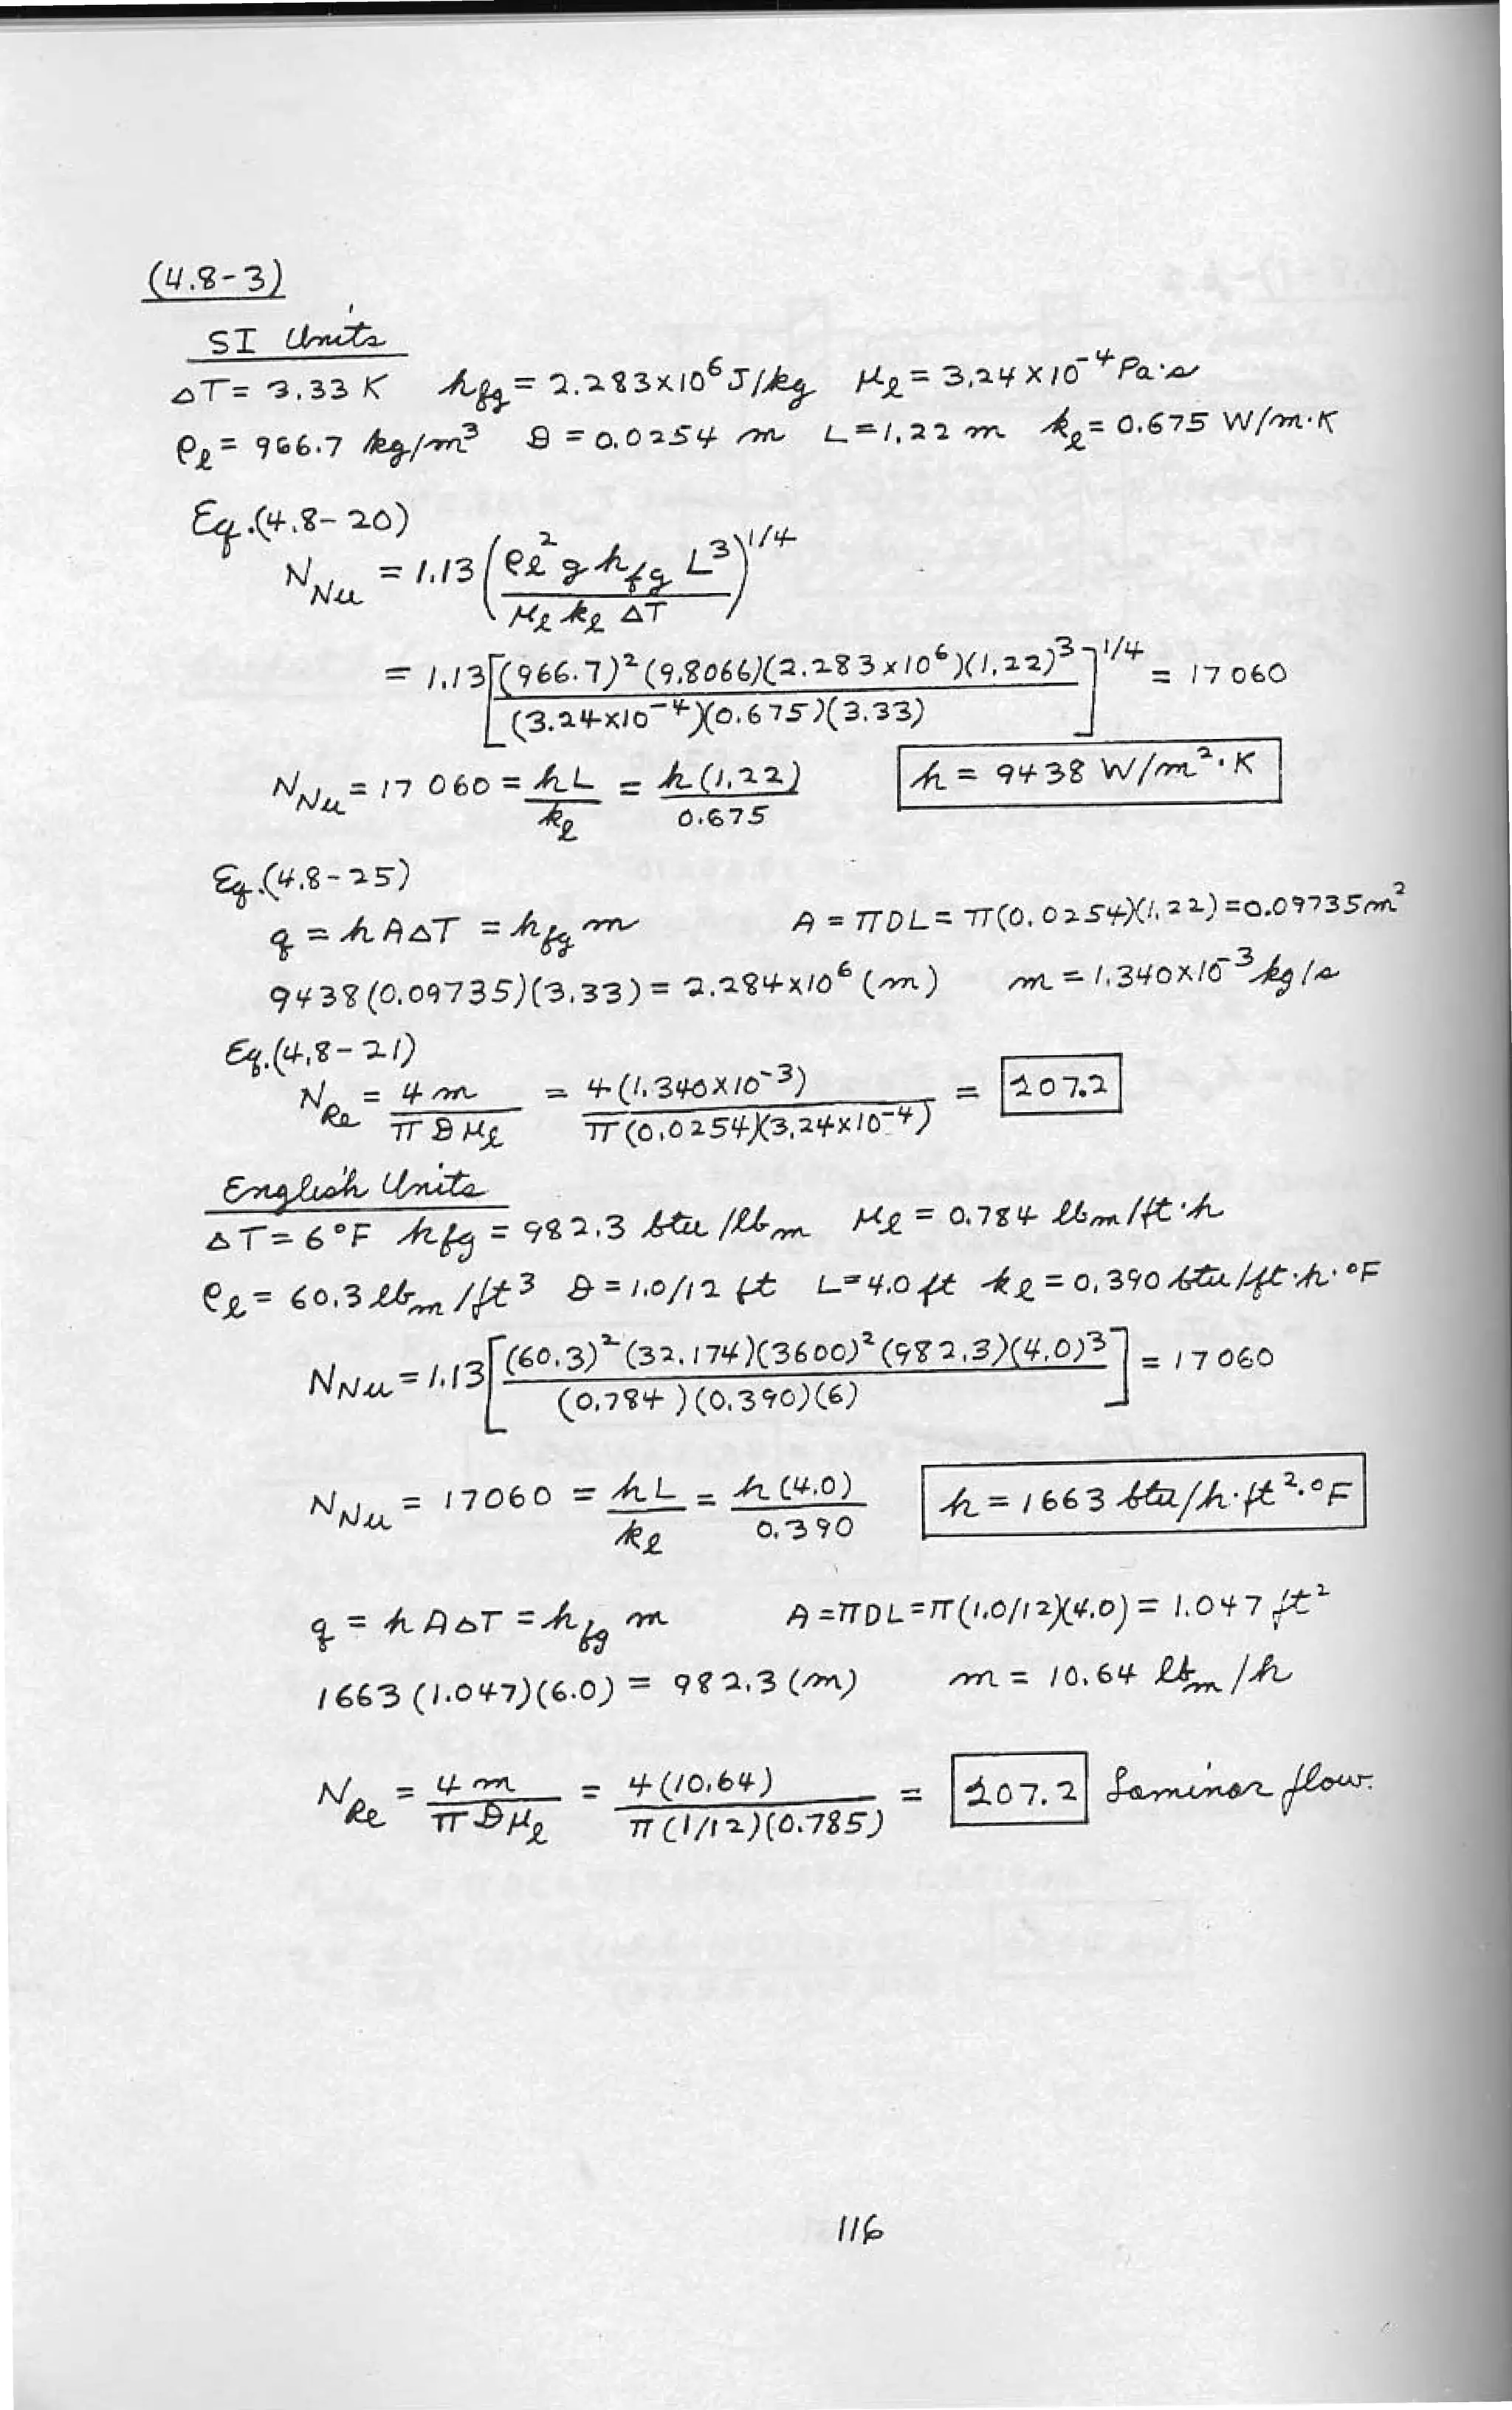 (4.8-3)
SI Units
ΔT = 3.33 K h_fg = 2.283×10^6 J/kg μ_ℓ = 3.24×10^-4 Pa·s
ρ_ℓ = 966.7 kg/m^3 D = 0.0254 m L = 1.22 m k_ℓ = 0.675 W/m·K
Eq.(4.8-20)
N_Nu = 1.13 (ρ_ℓ^2 g h_fg L^3 / μ_ℓ k_ℓ ΔT)^1/4
= 1.13 [(966.7)^2 (9.8066)(2.283×10^6)(1.22)^3 / (3.24×10^-4)(0.675)(3.33)]^1/4 = 17 060
N_Nu = 17 060 = hL / k_ℓ = h(1.22) / 0.675 h = 9438 W/m^2·K
Eq.(4.8-25)
q = hAΔT = h_fg m A = πDL = π(0.0254)(1.22) = 0.09735 m^2
9438(0.09735)(3.33) = 2.284×10^6 (m) m = 1.340×10^-3 kg/s
Eq.(4.8-21)
N_Re = 4m / πDμ_ℓ = 4(1.340×10^-3) / π(0.0254)(3.24×10^-4) = 207.2
English Units
ΔT = 6°F h_fg = 982.3 btu/lb_m μ_ℓ = 0.784 lb_m/ft·h
ρ_ℓ = 60.3 lb_m/ft^3 D = 1.0/12 ft L = 4.0 ft k_ℓ = 0.390 btu/ft·h·°F
N_Nu = 1.13 [(60.3)^2 (32.174)(3600)^2 (982.3)(4.0)^3 / (0.784)(0.390)(6)] = 17060
N_Nu = 17060 = hL / k_ℓ = h(4.0) / 0.390 h = 1663 btu/h·ft^2·°F
q = hAΔT = h_fg m A = πDL = π(1.0/12)(4.0) = 1.047 ft^2
1663 (1.047)(6.0) = 982.3 (m) m = 10.64 lb_m/h
N_Re = 4m / πDμ_ℓ = 4(10.64) / π(1/12)(0.785) = 207.2 Laminar flow.
116